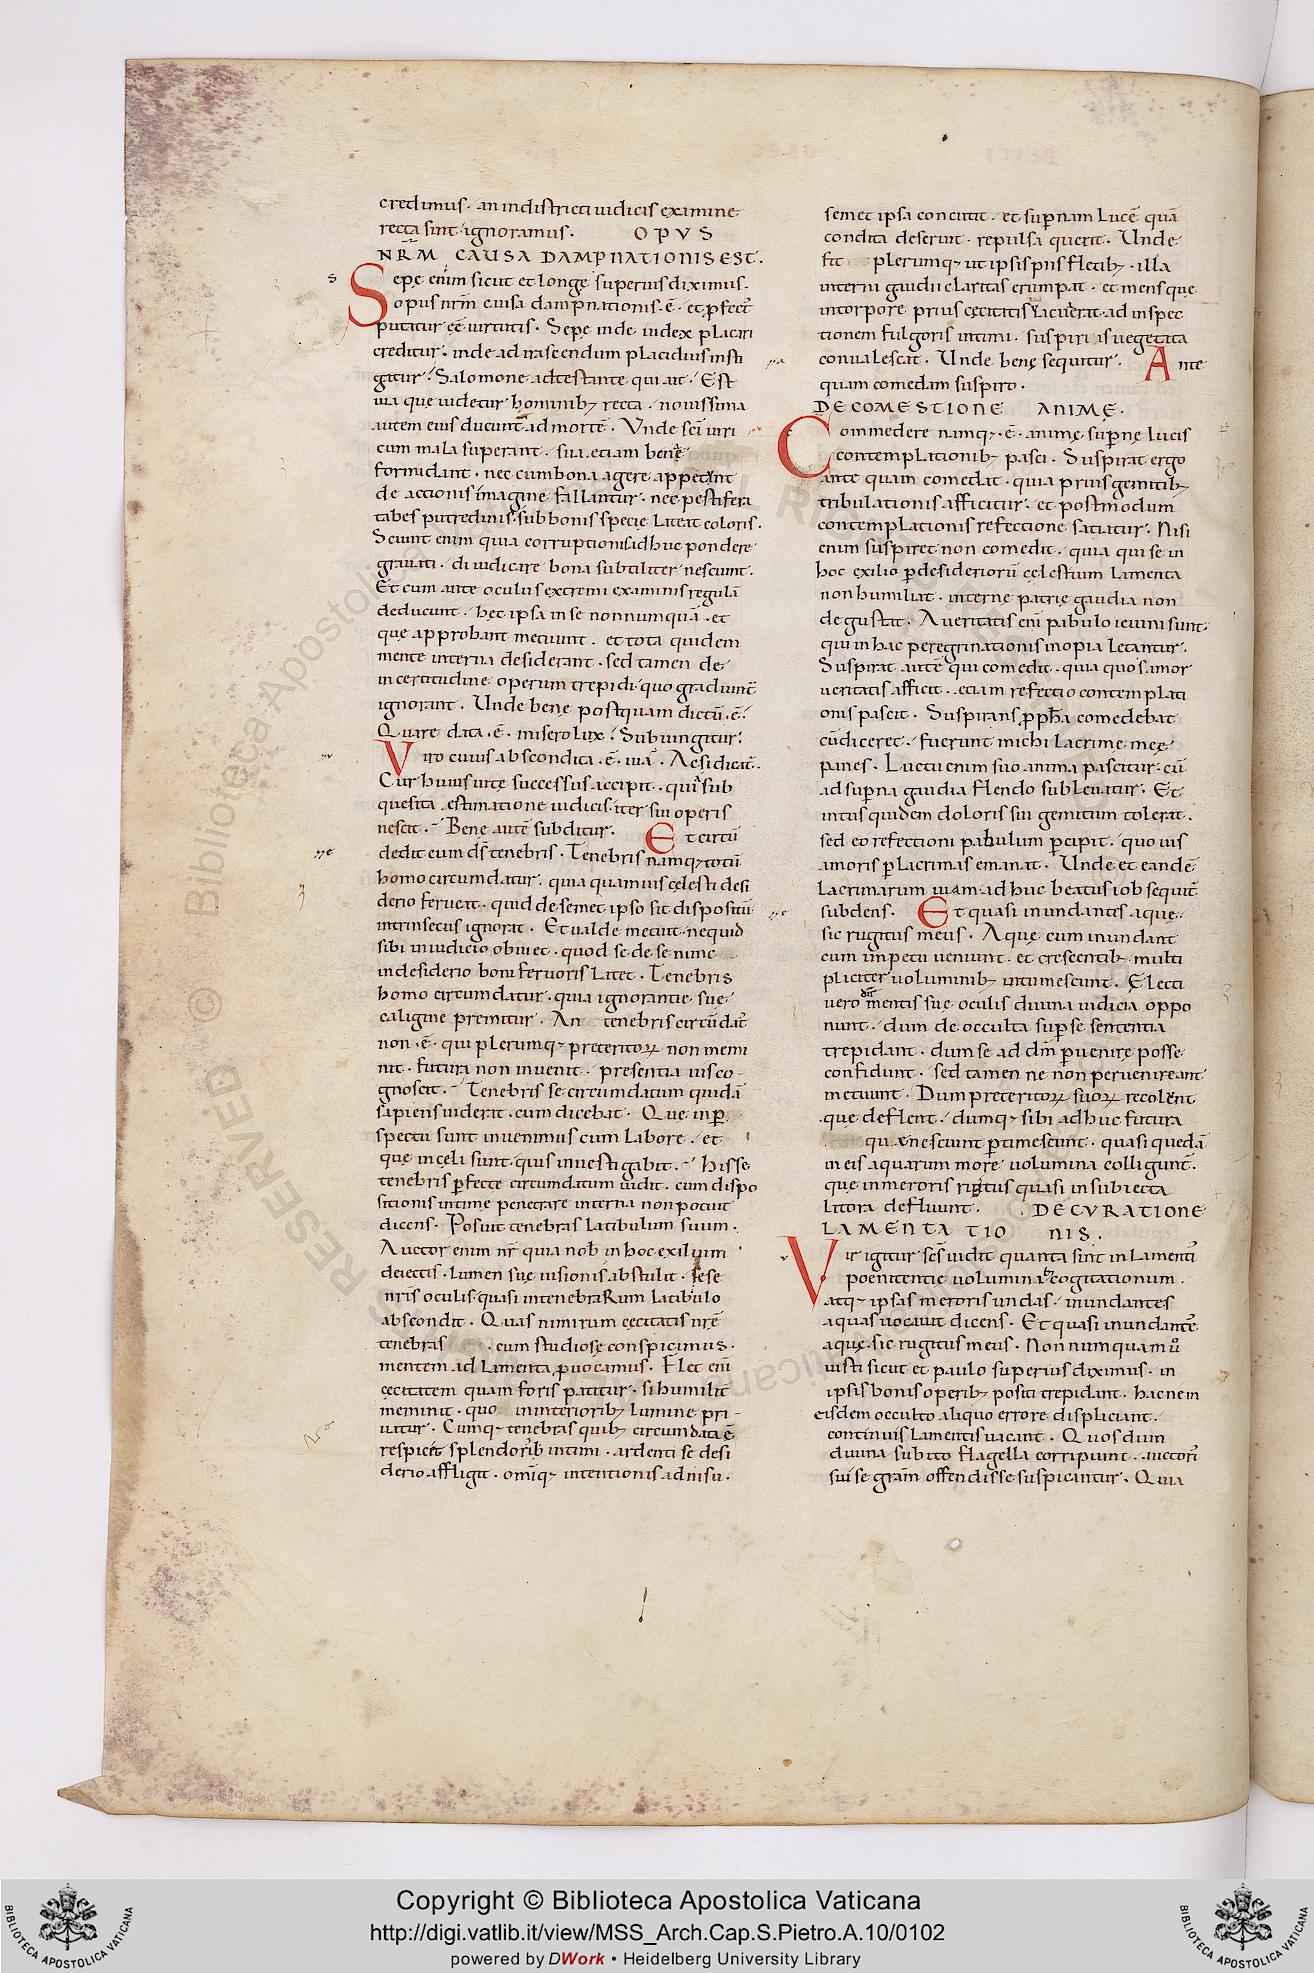 credimus. an in districti iudicis examine
recta sint ignoramus. OPVS
NRM̄ CAUSA DAMPNATIONIS EST.
Sepę enim sicut et longe superius diximus.
opus nr̄m causa dampnationis .ē. et pfect̄
putatur eē uirtutis. Sepę inde iudex placari
creditur. inde ad irascendum placidius insti
gatur. Salomone adtestante qui ait. Est
uia quę uidetur hominib; recta. nouissima
autem eius ducunt ad mortē. Vnde sc̄i uiri
cum mala superant. sua etiam benę
formidant. ne cum bona agere appetunt
de actionis imagine fallantur. ne pestifera
tabes putredinis. sub boni specię lateat coloris.
Sciunt enim quia corruptionis adhuc pondere
grauati. diiudicare bona subtiliter nesciunt.
Et cum ante oculus extremi examinis regulā
deducunt. hęc ipsa in se nonnumquā. et
quę approbant metuunt. et tota quidem
mente interna desiderant. sed tamen de
incertitudine operum trepidi. quo gradiunt̄
ignorant. Unde benę postquam dictū .ē.
Quare data .ē. misero lux. Subiungitur.
Viro cuius abscondita .ē. uiā. Ac si dicat̄.
Cur huius uitę successus accipit. qui sub
quesita estimatione iudicis. iter sui operis
nescit. Benę autē subditur. Et circū
dedit eum ds̄ tenebris. Tenebris namq; totū
homo circumdatur. quia quamuis cęlesti desi
derio ferueat. quid de semet ipso sit dispositū
intrinsecus ignorat. Et ualde metuit. ne quid
sibi in iudicio obuiet. quod se de se nunc
in desiderio boni feruoris latet. Tenebris
homo circumdatur. quia ignorantię suę
caligine premitur. An tenebris circūdat̄
non .ē. qui plerumq; preteritorꝝ non memi
nit. futura non inuenit. presentia uix co-
gnoscit. Tenebris se circumdatum quidā
sapiens uiderat. cum dicebat. Que in p̱
spectu sunt inuenimus cum labore. et
quę in cęli sunt. quis inuestigabit. His se
tenebris p̱fecte circumdatum uidit. cum dispo
sitionis intimę penetrare interna non potuit
dicens. Posuit tenebras latibulum suum.
Auctor enim nr̄ quia nob̄ in hoc exilium
deiectis. lumen suę uisionis abstulit. sese
nr̄is oculis quasi in tenebraRum latibulo
abscondit. Quas nimirum cęcitatis nr̄ę
tenebras . cum studiose conspicimus.
mentem ad lamenta p̱uocamus. Flet eni
cęcitatem quam foris patitur. si humilit̄
meminit. quo in interiorib; lumine pri-
uatur. Cumq; tenebras quib; circumdata ē
respicit splendorib; intimi. ardenti se desi
derio affligit. om̄iq; intentionis adnisu.
semet ipsa concutit. et sup̱nam lucē quā
condita deseruit. repulsa querit. Unde
fit plerumq; ut ipsis piis fletib;. illa
interni gaudii claritas erumpat. et mens quę
in torpore prius cęcitatis iacuerat. ad inspec
tionem fulgoris intimi. suspiriis uegetata
conualescat. Unde benę sequitur. Ante
quam comedam suspiro.
DE COMESTIONE ANIMĘ.
Commedere namq; .ē. animę sup̱nę lucis
contemplationib; pasci. Suspirat ergo
ante quam comedat. quia prius gemitib;
tribulationis afficitur. et postmodum
contemplationis refectione satiatur. Nisi
enim suspiret non comedit. quia qui se in
hoc exilio p̱ desideriorū cęlestium lamenta
non humiliat. internę patrię gaudia non
degustat. A ueritatis eni pabulo ieiuni sunt.
qui in hac peregrinationis inopia lętantur.
Suspirat autē qui comedit. quia quos amor
ueritatis afficit. etiam refectio contemplati
onis pascit. Suspirans p̱ph̄a comedebat
cū diceret. fuerunt michi lacrimę meę
panes. Luctu enim suo anima pascitur. cū
ad sup̱na gaudia flendo subleuatur. Et
intus quidem doloris sui gemitum tolerat.
sed eo refectioni pabulum p̱cipit. quo uis
amoris p̱ lacrimas emanat. Unde et eandē
lacrimarum uiam adhuc beatus iob sequit̄
subdens. Et quasi inundantes aquę.
sic rugitus meus. Aquę cum inundant
cum impetu ueniunt. et crescentib; multi
pliciter uoluminib; intumescunt. Electi
uero dum mentis suę oculis diuina iudicia oppo
nunt. dum de occulta sup̱ se sententia
trepidant. dum se ad dm̄ p̱uenire posse
confidunt. sed tamen ne non perueniant
metuunt. Dum preteritorꝝ suorꝝ recolent
.quę deflent. dumq; sibi adhuc futura
quia nesciunt p̱timescunt. quasi quedā
in eis aquarum more uolumina colligunt̄.
quę in meroris rugitus quasi in subiecta
litora defluunt. DE CVRATIONE
LAMENTATIONIS.
Vir igitur sc̄s uidit quanta sint in lamentū
poenitentię uolumina cogitationum.
atq; ipsas meroris undas. inundantes
aquas uocauit dicens. Et quasi inundantē
aquę. sic rugitus meus. Nonnumquam ū
iusti sicut et paulo superius diximus. in
ipsis bonis operib; positi trepidant. hac ne in
eisdem occulto aliquo errore displiciant.
continuis lamentis uacant. Quos dum
diuina subito flagella corripiunt. auctoris
sui se gr̄am offendisse suspicantur. Quia
Copyright © Biblioteca Apostolica Vaticana
http://digi.vatlib.it/view/MSS_Arch.Cap.S.Pietro.A.10/0102
powered by DWork • Heidelberg University Library
BIBLIOTECA APOSTOLICA VATICANA
BIBLIOTECA APOSTOLICA VATICANA